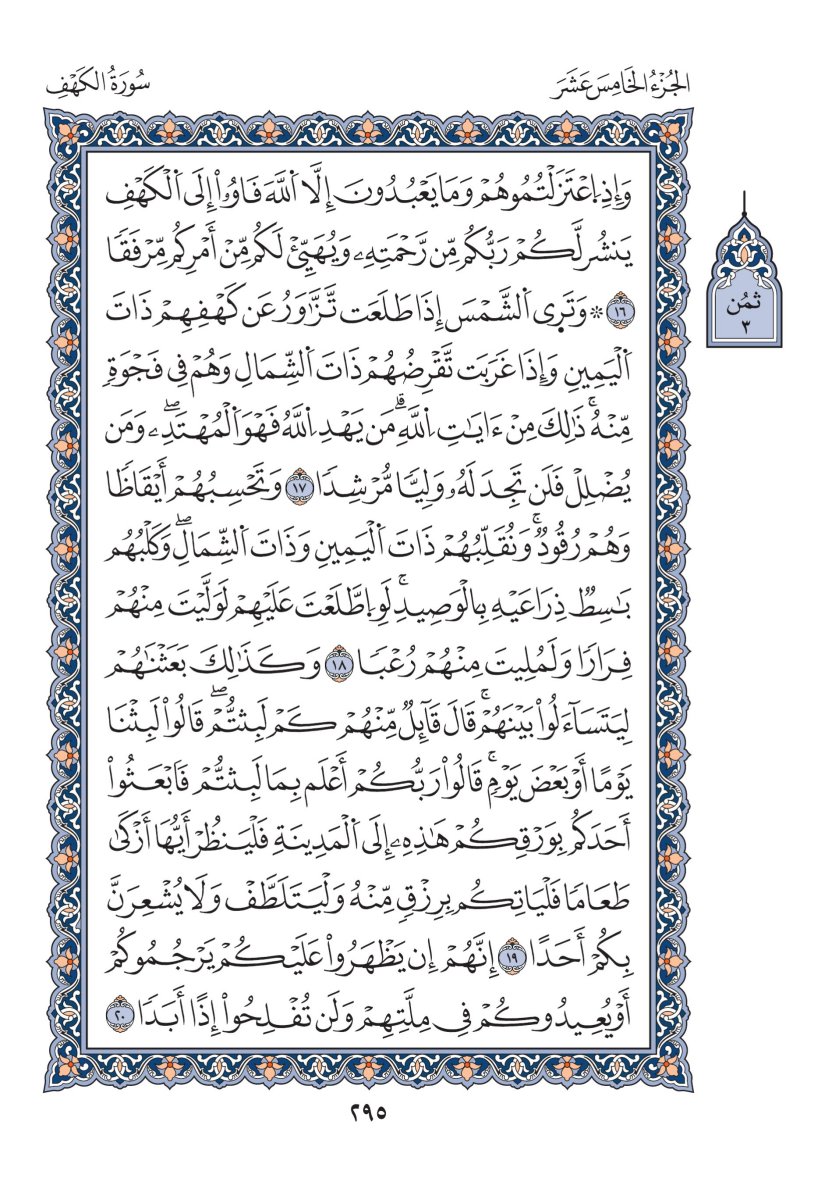 الجُزْءُ الخَامِسَ عَشَرَ
سُورَةُ الكَهْفِ
وَإِذِ اِعْتَزَلْتُمُوهُمْ وَمَا يَعْبُدُونَ إِلَّا اَللَّهَ فَاوُۥاْ إِلَى اَلْكَهْفِ
يَنشُر لَّكُمْ رَبُّكُم مِّن رَّحْمَتِهِۦ وَيُهَيِّئْ لَكُم مِّنْ أَمْرِكُم مِّرْفَقًا
١٦ ۞ وَتَرَى اَلشَّمْسَ إِذَا طَلَعَت تَّزَّٰوَرُ عَن كَهْفِهِمْ ذَاتَ
اَلْيَمِينِ وَإِذَا غَرَبَت تَّقْرِضُهُمْ ذَاتَ اَلشِّمَالِ وَهُمْ فِي فَجْوَةٍ
مِّنْهُۚ ذَٰلِكَ مِنْ ءَايَٰتِ اِللَّهِۗ مَن يَهْدِ اِللَّهُ فَهْوَ اَلْمُهْتَدِۦۖ وَمَن
يُضْلِلْ فَلَن تَجِدَ لَهُۥ وَلِيًّا مُّرْشِدًا ١٧ وَتَحْسِبُهُمْ أَيْقَاظًا
وَهُمْ رُقُودٌۚ وَنُقَلِّبُهُمْ ذَاتَ اَلْيَمِينِ وَذَاتَ اَلشِّمَالِۖ وَكَلْبُهُم
بَٰسِطٌ ذِرَاعَيْهِ بِالْوَصِيدِۚ لَوِ اِطَّلَعْتَ عَلَيْهِمْ لَوَلَّيْتَ مِنْهُمْ
فِرَارًا وَلَمُلِيتَ مِنْهُمْ رُعْبًا ١٨ وَكَذَٰلِكَ بَعَثْنَٰهُمْ
لِيَتَسَآءَلُواْ بَيْنَهُمْۚ قَالَ قَآئِلٌ مِّنْهُمْ كَمْ لَبِثتُّمْۖ قَالُواْ لَبِثْنَا
يَوْمًا أَوْ بَعْضَ يَوْمٍۚ قَالُواْ رَبُّكُمْ أَعْلَم بِمَا لَبِثتُّمْ فَابْعَثُواْ
أَحَدَكُم بِوَرْقِكُمْ هَٰذِهِۦ إِلَى اَلْمَدِينَةِ فَلْيَنظُرْ أَيُّهَا أَزْكَىٰ
طَعَامًا فَلْيَاتِكُم بِرِزْقٍ مِّنْهُ وَلْيَتَلَطَّفْ وَلَا يُشْعِرَنَّ
بِكُمْ أَحَدًا ١٩ إِنَّهُمْ إِن يَظْهَرُواْ عَلَيْكُمْ يَرْجُمُوكُمْ
أَوْ يُعِيدُوكُمْ فِي مِلَّتِهِمْ وَلَن تُفْلِحُواْ إِذًا أَبَدًا ٢٠
ثمُن
٣
٢٩٥